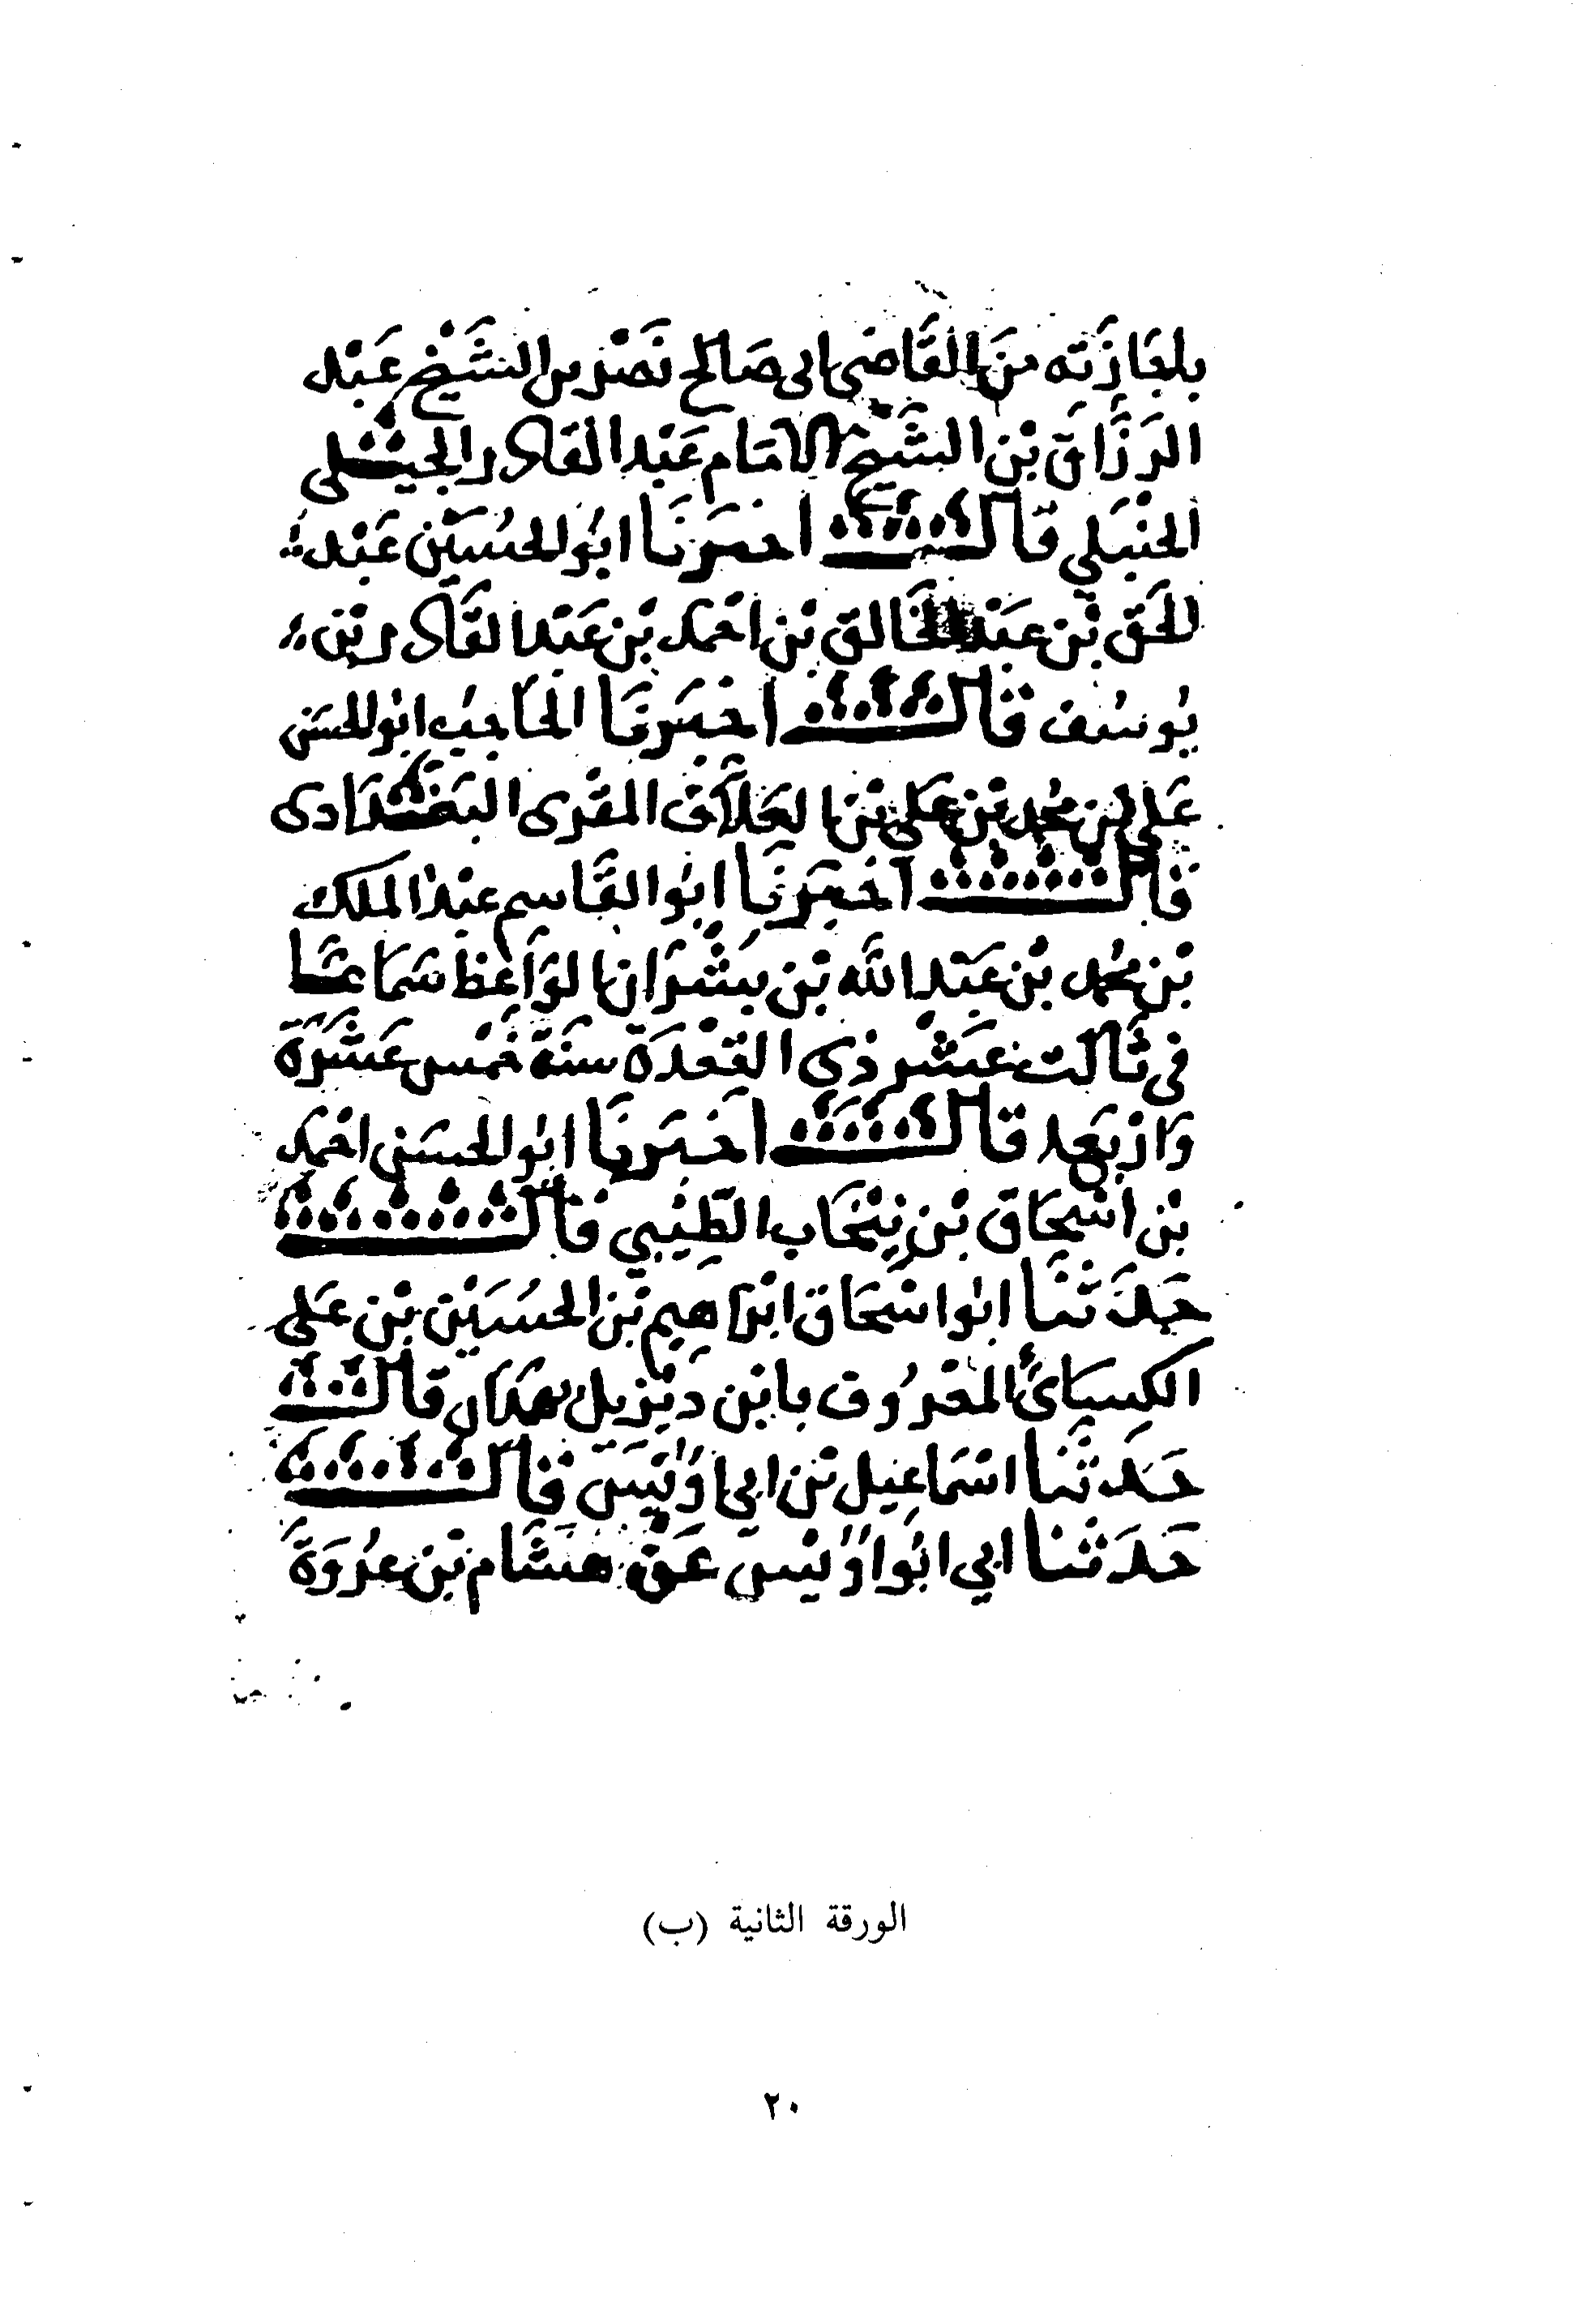 بإجازته من القاضي ابى صالح نصر بن الشيخ عبد
الرزاق بن الشيخ الامام عبد القادر الجيلى
الحنبلي قال اخبرنا ابو الحسين عبد
الحق بن عبد الخالق بن احمد بن عبد القادر بن
يوسف قال اخبرنا الحاجب ابو الحسن
على بن محمد بن على بن العلاف المقرى البغدادى
قال اخبرنا ابو القاسم عبد الملك
بن محمد بن عبد الله بن بشران الواعظ سماعا
فى ثالث عشر ذي القعدة سنة خمس عشرة
واربعمـ قال اخبرنا ابو الحسن احمد
بن اسحاق بن نيخاب الطيبي قال
حدثنا ابو اسحاق ابراهيم بن الحسين بن علي
الكسائ المعروف بابن ديزيل بهمدان قال
حدثنا اسماعيل بن ابي اويس قال
حدثنا ابي ابو اويس عن هشام بن عروة
الورقة الثانية (ب)
٢٠